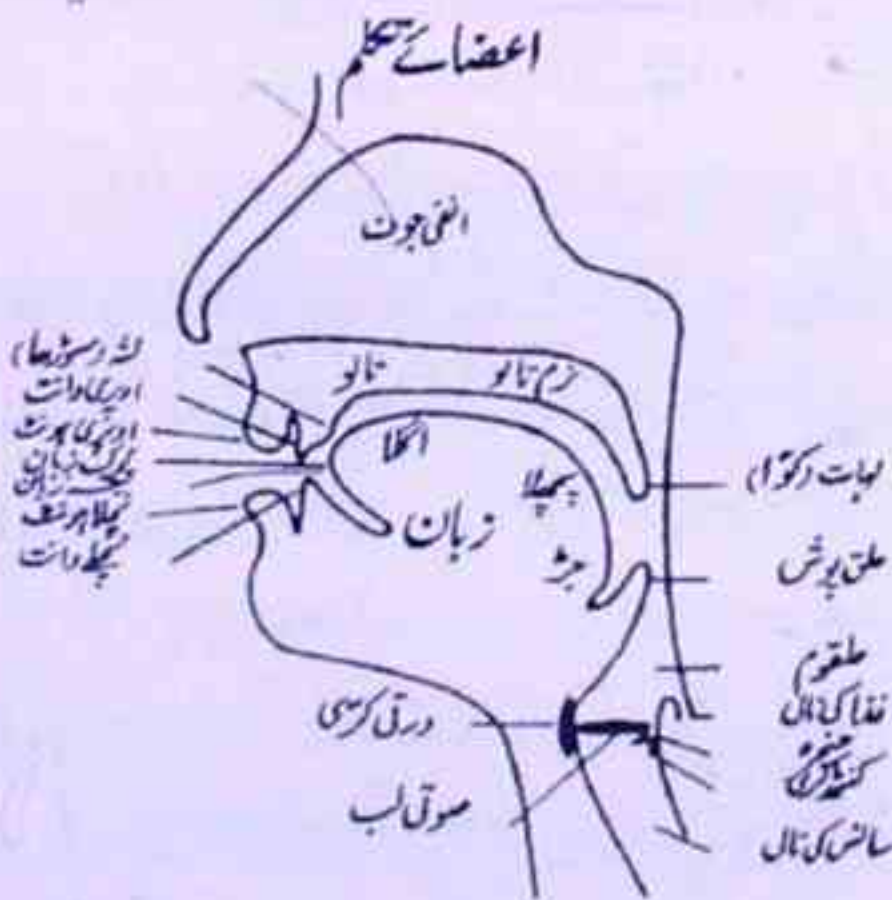 اعضائے تکلم
انفی جوف
لثہ (مسوڑھا)
اوپری دانت
اوپری ہونٹ
نوک زبان
زبان
نچلا ہونٹ
نچلے دانت
تالو
نرم تالو
اگلا
پچھلا
زبان
جڑ
لہات (کوّا)
حلق پوش
حلقوم
غذا کی نالی
حنجرہ
سانس کی نالی
ورقی کرسی
صوتی لب